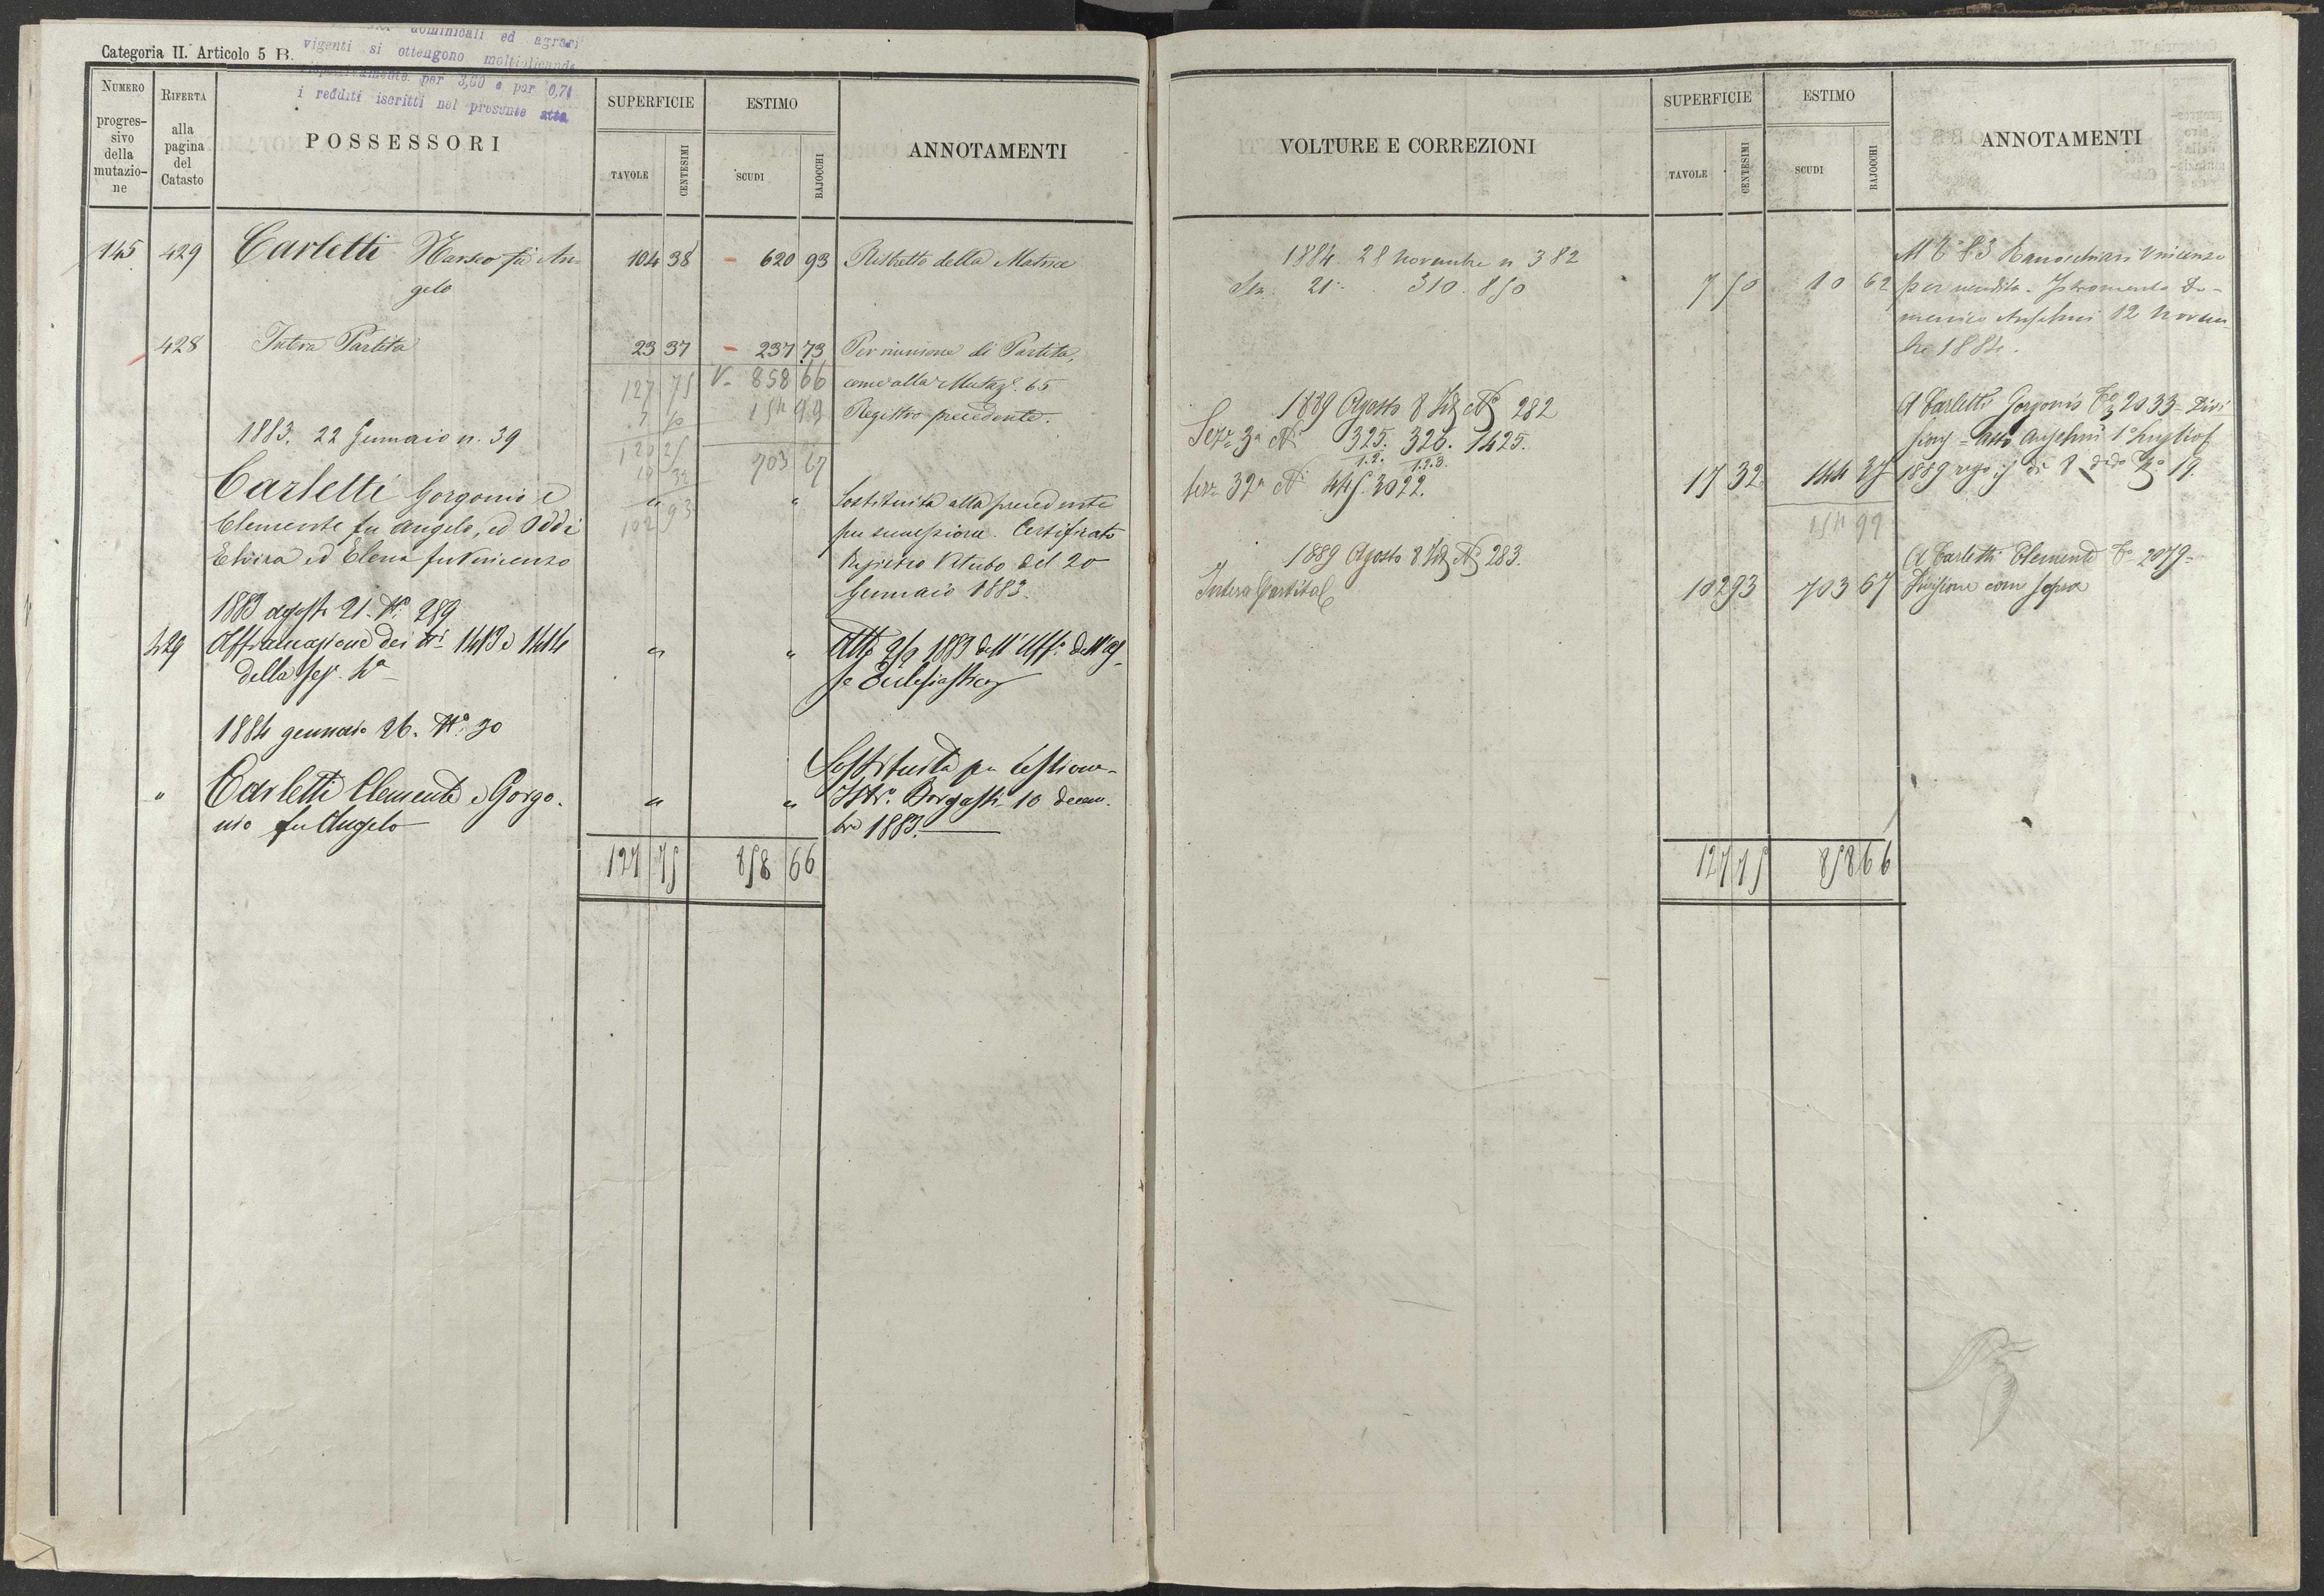 Categoria II. Articolo 5 B.
dominicali ed agrari
vigenti si ottengono moltiplicando
rispettivamente per 3,60 e per 0,71
i redditi iscritti nel presente atto
NUMERO progres-
sivo
della
mutazio-
ne
RIFERTA
alla
pagina
del
Catasto
POSSESSORI
SUPERFICIE
TAVOLE
CENTESIMI
ESTIMO
SCUDI
BAJOCCHI
ANNOTAMENTI
145 429 Carletti fù An-
gelo
104 38 - 620 93 Ristretto della Matrice
428 Intera Partita 23 37 - 237 73 Per riunione di Partita,
127 75 V. 858 66 come alla Mutaz. 65
7 50 154 99 Registro precedente.
1883. 22 Gennaio n. 39
120 25 703 67
Carletti Gorgonio e " "
Clemente fu Angelo, ed Oddi 102 93
Elvira ed Elena fu Vincenzo
Sostituita alla precedente
per successione. Certificato
Registro Viterbo del 20
Gennaio 1883.
1883 agosto 21. N.° 289
429 Affrancazione dei Ni 1413 e 1414 " "
della Sez. 4a
Atto 1883 dell'Uff.
1884 gennaio 26. N.° 30
" Carletti Clemente e Gorgo- " "
nio fu Angelo
Sostituita per
Istr. 10 decem-
bre 1883.
127 75 858 66
VOLTURE E CORREZIONI
SUPERFICIE
TAVOLE
CENTESIMI
ESTIMO
SCUDI
BAJOCCHI
ANNOTAMENTI
1884. 28 Novembre n 382
Sez. 21a 310. 850 7 50 10 62
83 Vincenzo
per vendita - Istromento Do-
menico Anselmi 12 Novem-
bre 1884.
1889 Agosto 8 N° 282
Sez. 3a Ni 325. 326. 1425.
1.2. 1.2.3.
Sez. 32a Ni 445. 3022. 17 32 144 37
154 99
A Carletti Gorgonio 2033 - Divi
sione - atto Anselmi 1° Luglio
1889 19.
1889 Agosto 8 N° 283.
Intera Partita 102 93 703 67
A Carletti Clemente 2079 -
Divisione come sopra
127 75 858 66